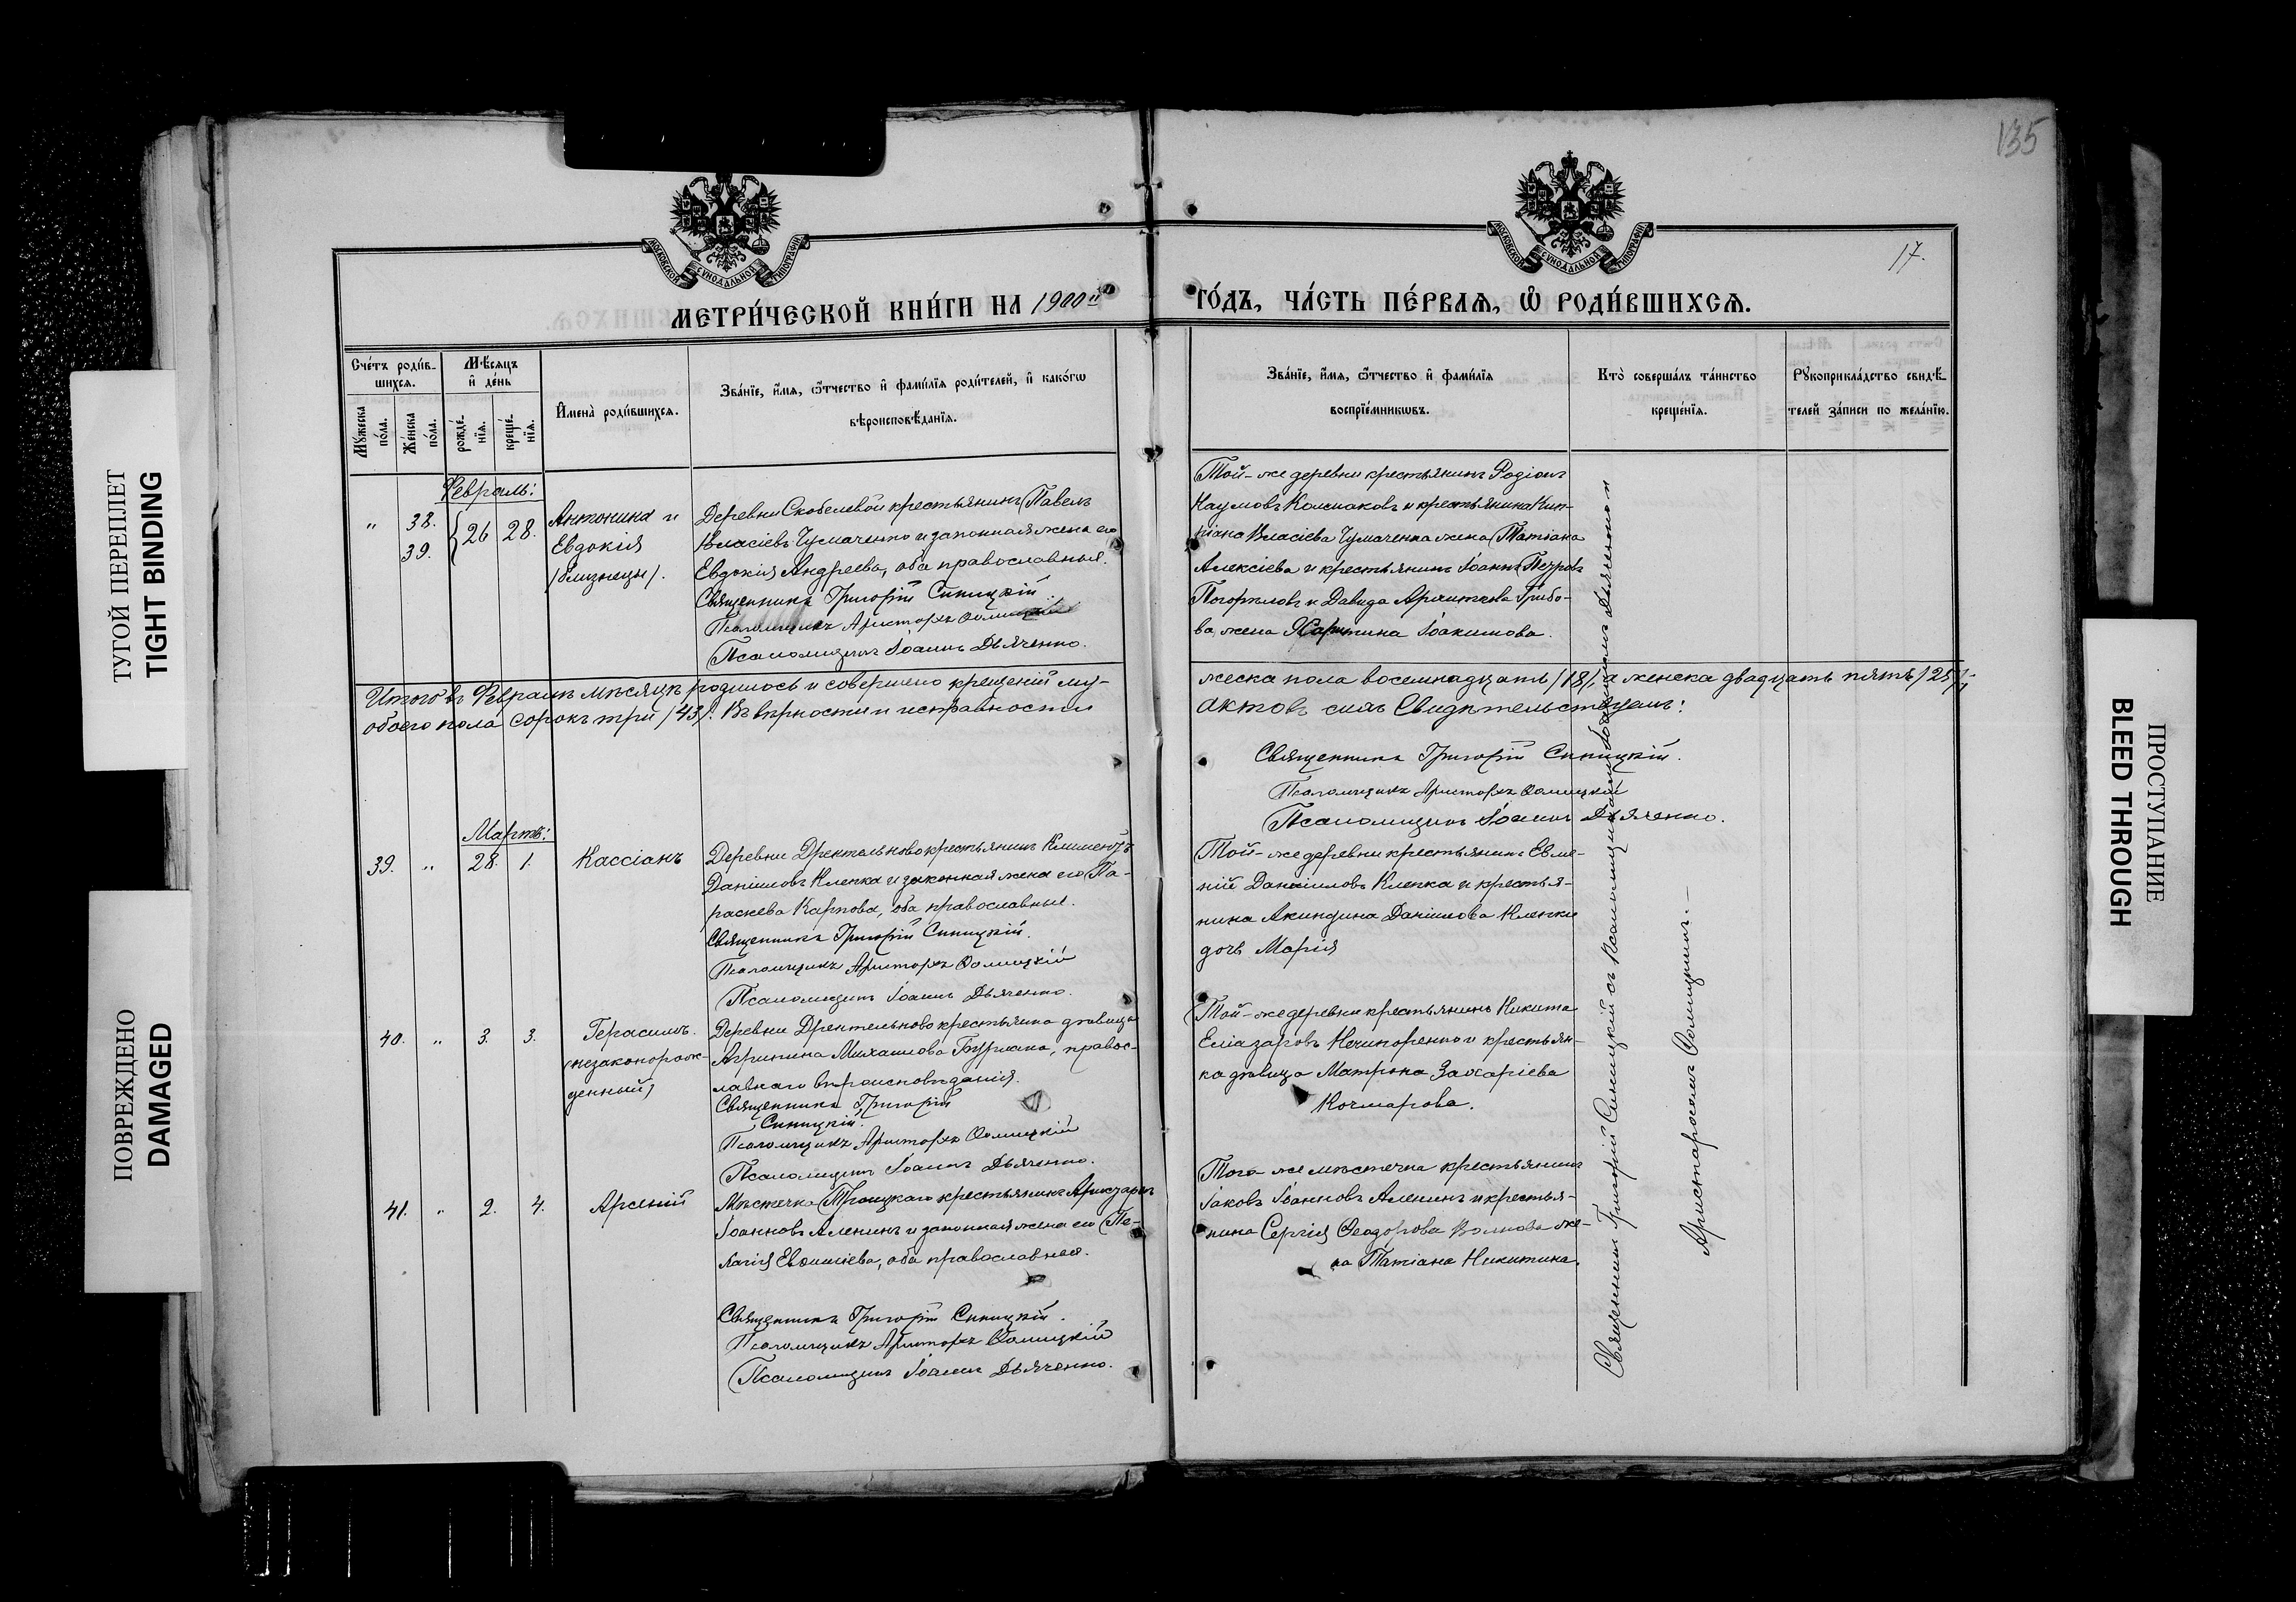 135
17.
МОСКОВСКОЙ СѴНОДАЛЬНОЙ ТИПОГРАФІИ
МОСКОВСКОЙ СѴНОДАЛЬНОЙ ТИПОГРАФІИ
МЕТРИ́ЧЕСКОЙ КНИ́ГИ НА 1900й
ГО́ДЪ, ЧА́СТЬ ПЕ́РВАѦ, Ѡ҆ РОДИ́ВШИХСѦ.
Сче́тъ роди́в-
шихсѧ.
Му́жеска
по́ла.
Же́нска
по́ла.
Мѣ́сѧцъ
и҆ де́нь
рожде́-
нїѧ.
креще́-
нїѧ.
И҆мена̀ роди́вшихсѧ.
Зва́нїе, и҆́мѧ, ѻ҆́тчество и҆ фами́лїѧ роди́телей, и҆ како́гѡ
вѣроисповѣ́данїѧ.
Зва́нїе, и҆́мѧ, ѻ҆́тчество и҆ фами́лїѧ
воспрїе́мникѡвъ.
Кто̀ соверша́лъ та́инство
креще́нїѧ.
Рꙋкоприкла́дство свидѣ́-
телей за́писи по жела́нїю.
Февраль:
" 38. 39. 26 28.
Антонина и
Евдокія
/близнецы/.
Деревни Скобелевой крестьянинъ Павелъ
Власіевъ Чумаченко и законная жена его
Евдокія Андреева, оба православные.
Священникъ Григорій Синицкій.
Псаломщикъ Аристархъ Фомицкій
Псаломщикъ Іоаннъ Дьяченко.
Той-же деревни крестьянинъ Родіонъ
Наумовъ Колмаковъ и крестьянина Кип-
ріана Власіева Чумаченка жена Татіана
Алексіева и крестьянинъ Іоаннъ Петровъ
Погорѣловъ и Давида Грибо-
ва жена Харитина Іоакимова.
Итого въ Февралѣ мѣсяцѣ родилось и совершено крещеній му-
жеска пола восемнадцать /18/, а женска двадцать пять /25/,
обоего пола сорокъ три /43/. Въ вѣрности и исправности
актовъ сихъ Свидѣтельствуемъ:
Священникъ Григорій Синицкій.
Псаломщикъ Аристархъ Фомицкій
Псаломщикъ Іоаннъ Дьяченко.
Мартъ:
39. " 28. 1. Кассіанъ
Деревни Дрентельново крестьянинъ Климентъ
Даніиловъ Клепка и законная жена его Па-
раскева Карпова, оба православные.
Священникъ Григорій Синицкій.
Псаломщикъ Аристархъ Фомицкій
Псаломщикъ Іоаннъ Дьяченко.
Той-же деревни крестьянинъ Евме-
ній Даніиловъ Клепка и крестья-
нина Акиндина Даніилова Клепки
дочь Марія
40. " 3. 3. Герасимъ.
(незаконорож-
денный)
Деревни Дрентельново крестьянка дѣвица
Агрипина Михаилова Бурлака, правос-
лавнаго вѣроисповѣданія.
Священникъ Григорій
Синицкій.
Псаломщикъ Аристархъ Фомицкій
Псаломщикъ Іоаннъ Дьяченко.
Той-же деревни крестьянинъ Никита
Еліазаровъ Нечипоренко и крестьян-
ка дѣвица Матрона Захаріева
Кочмарова.
41. " 2. 4. Арсеній
Мѣстечка Троицкаго крестьянинъ
Іоанновъ Аленинъ и законная жена его Пе-
лагія Евфиміева, оба православные.
Священникъ Григорій Синицкій.
Псаломщикъ Аристархъ Фомицкій
Псаломщикъ Іоаннъ Дьяченко.
Того же мѣстечка крестьянинъ
Іаковъ Іоанновъ Аленинъ и крестья-
нина Сергія Феодорова Волкова же-
на Татіана Никитина.
Священникъ Григорій Синицкій съ псаломщиками Іоанномъ Дьяченкомъ и
Аристархомъ Фомицкимъ.—
ТУГОЙ ПЕРЕПЛЕТ
TIGHT BINDING
ПОВРЕЖДЕНО
DAMAGED
ПРОСТУПАНИЕ
BLEED THROUGH